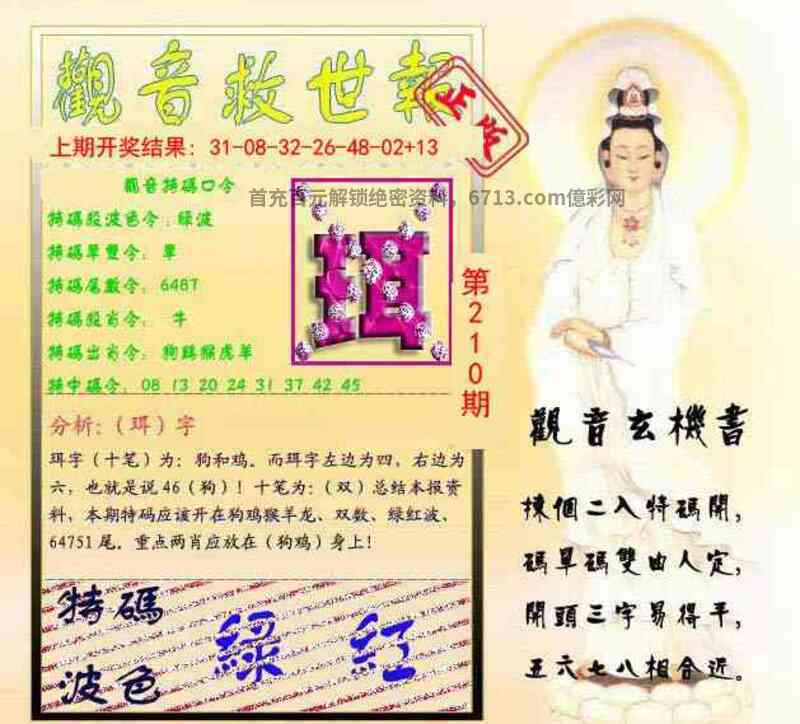 觀音救世報
正版
上期开奖结果：31-08-32-26-48-02+13
觀音特碼口令
首充百元解锁绝密资料，6713.com億彩网
特碼殺波色令：绿波
特碼單雙令：單
特碼尾數令：6487
特碼殺肖令：牛
特碼出肖令：狗鷄猴虎羊
特中碼令：08 13 20 24 31 37 42 45
珥
第210期
分析：（珥）字
珥字（十笔）为：狗和鸡。而珥字左边为四，右边为
六，也就是说46（狗）！十笔为：（双）总结本报资
料，本期特码应该开在狗鸡猴羊龙、双数、绿红波、
64751尾。重点两肖应放在（狗鸡）身上！
特碼
波色
綠 红
觀音玄機書
揀個二入特碼開，
碼單碼雙由人定，
開頭三字易得平，
五六七八相合近。